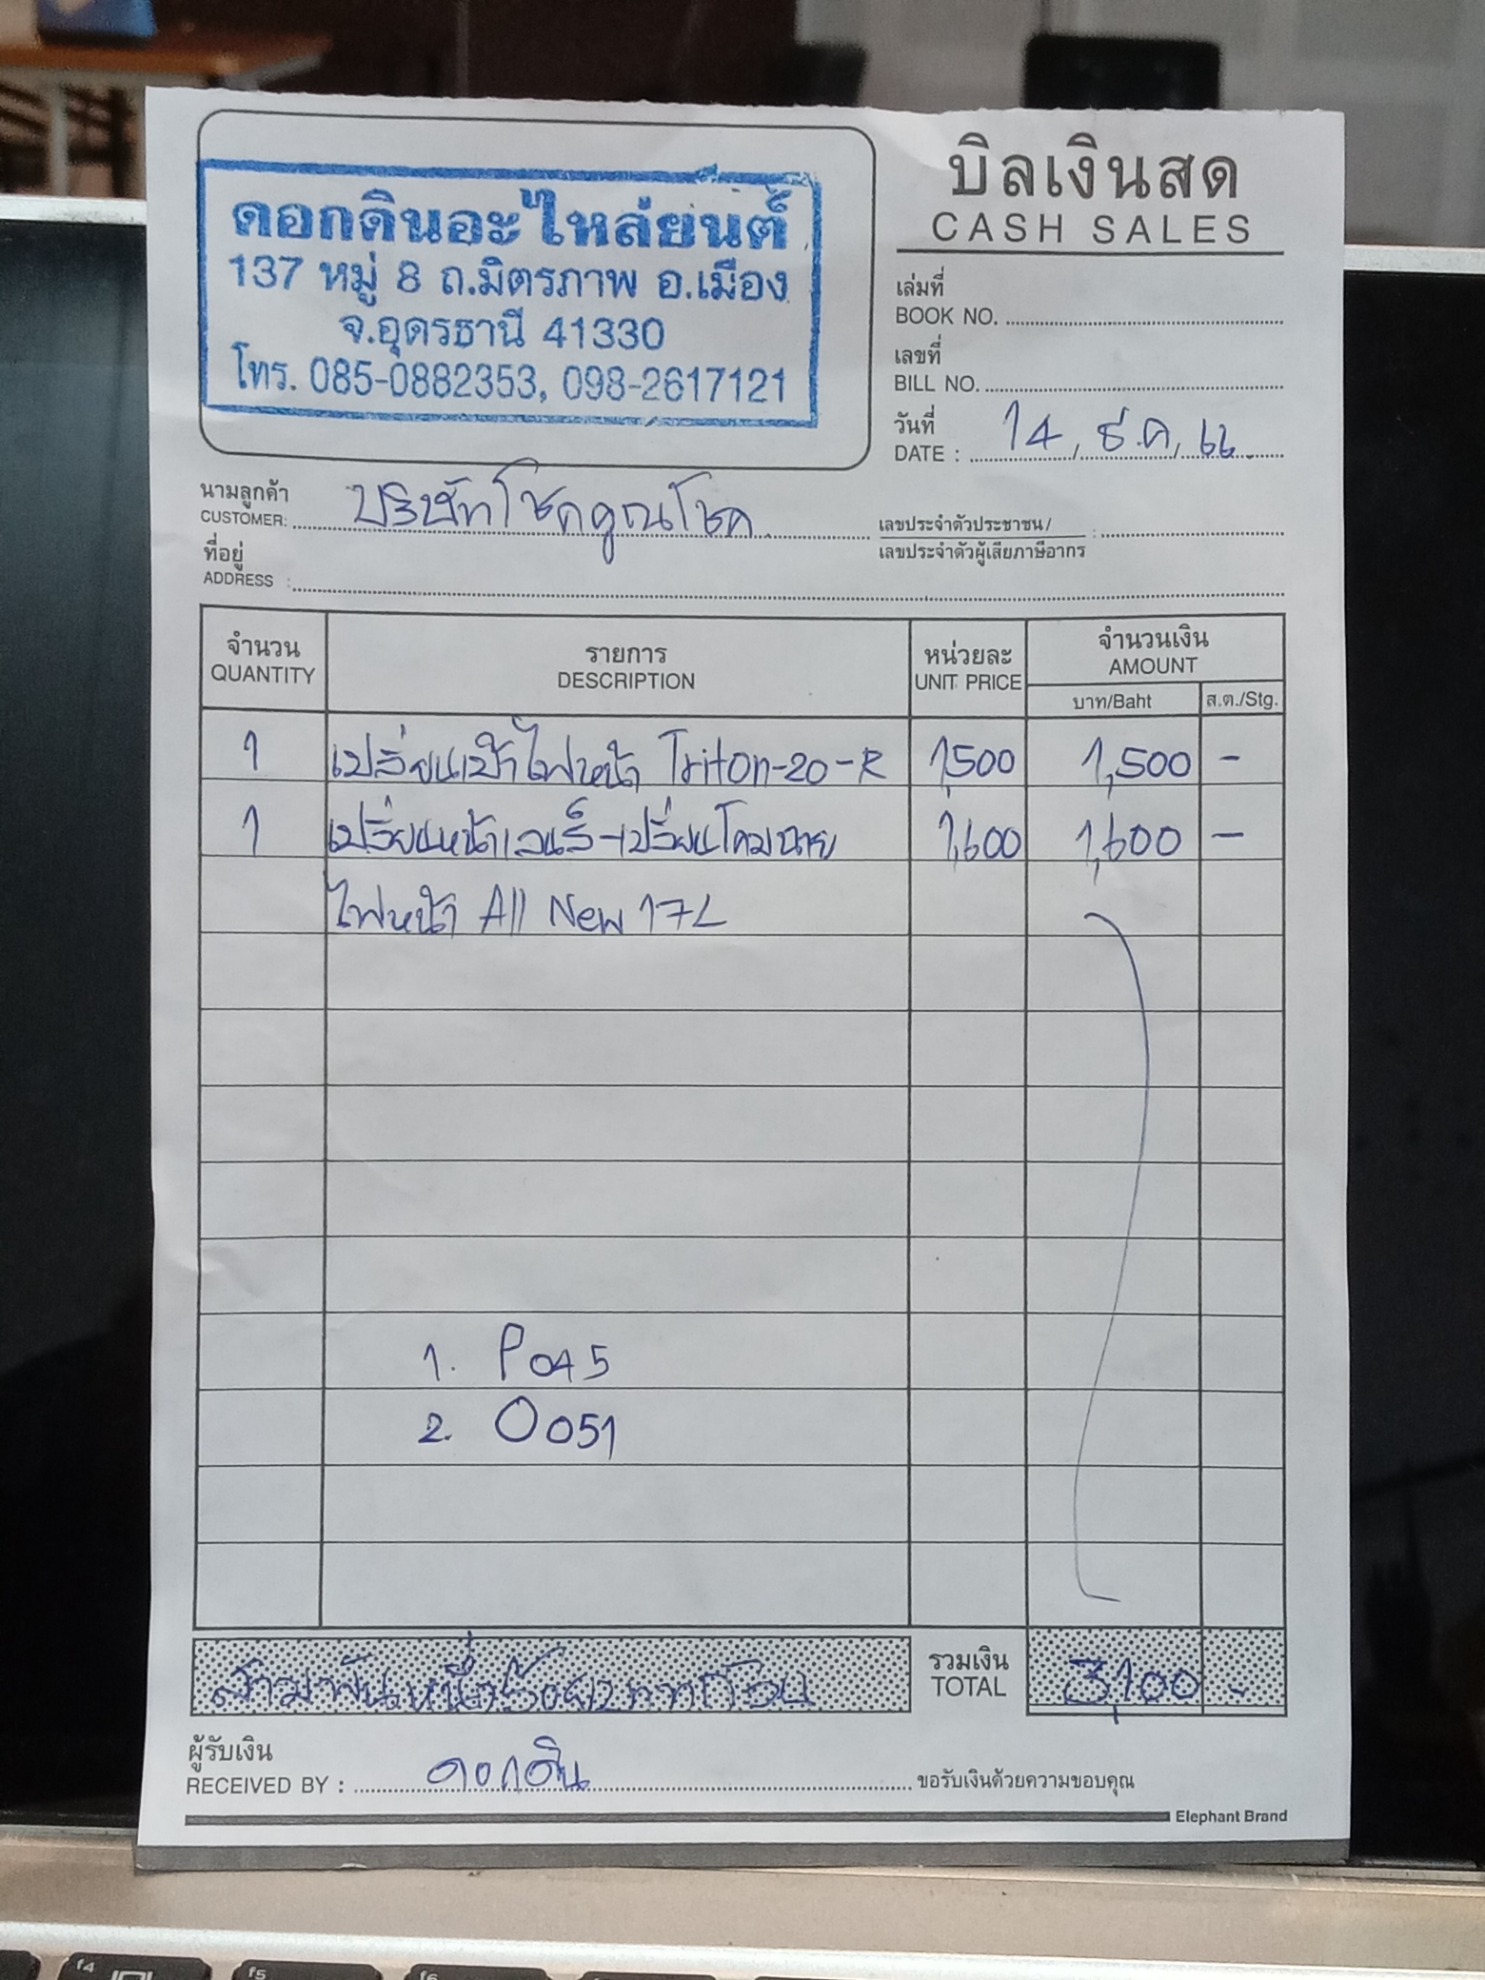 บิลเงินสด
CASH SALES
ดอกดินอะไหล่ยนต์
137 หมู่ 8 ถ.มิตรภาพ อ.เมือง
จ.อุดรธานี 41330
โทร. 085-0882353, 098-2617121
เล่มที่
BOOK NO.
เลขที่
BILL NO.
วันที่
DATE : 14 / ธ.ค. / 66
นามลูกค้า
CUSTOMER: บริษัทโชคคูณโชค
เลขประจำตัวประชาชน /
เลขประจำตัวผู้เสียภาษีอากร :
ที่อยู่
ADDRESS :
จำนวน รายการ หน่วยละ จำนวนเงิน
QUANTITY DESCRIPTION UNIT PRICE AMOUNT
บาท/Baht ส.ต./Stg.
1 เปลี่ยนเบ้าไฟหน้า Triton-20-R 1,500 1,500 -
1 เปลี่ยนหน้าเลนส์-เปลี่ยนโคมฉาย 1,600 1,600 -
ไฟหน้า All New 17L
1. P045
2. O051
สามพันหนึ่งร้อยบาทถ้วน
รวมเงิน
TOTAL 3,100 -
ผู้รับเงิน
RECEIVED BY : ดอกดิน ขอรับเงินด้วยความขอบคุณ
Elephant Brand
f4 f5 f6